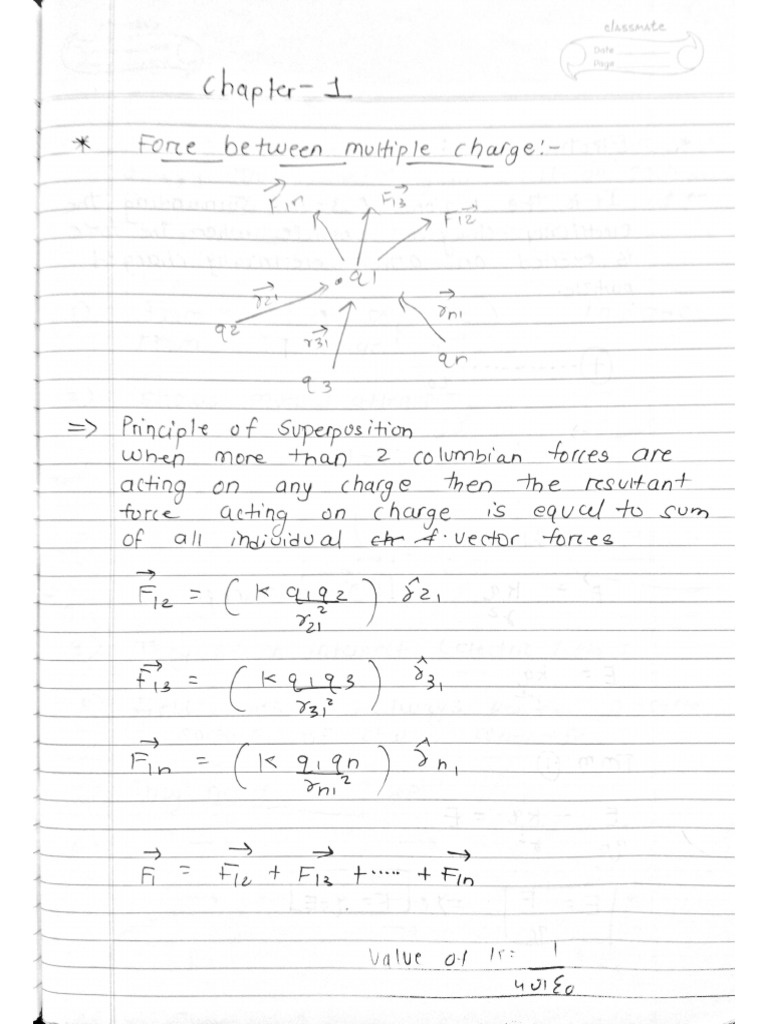 classmate
Date
Page
Chapter-1
* Force between multiple charge:-
F⃗1n F⃗13 F⃗12
q1
r⃗21 r⃗n1
q2 r⃗31
qn
q3
=> Principle of Superposition
When more than 2 columbian forces are
acting on any charge then the resultant
force acting on charge is equal to sum
of all individual vector forces
F⃗12 = (K q1q2 / r21²) r̂21
F⃗13 = (K q1q3 / r31²) r̂31
F⃗1n = (K q1qn / rn1²) r̂n1
F⃗1 = F⃗12 + F⃗13 + ..... + F⃗1n
Value of K = 1 / 4πε0